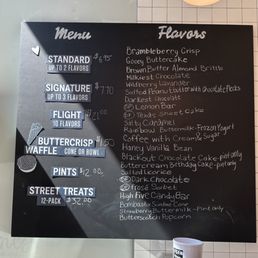 Menu
Flavors
STANDARD $6.95
UP TO 2 FLAVORS
SIGNATURE $7.70
UP TO 3 FLAVORS
FLIGHT
10 FLAVORS
BUTTERCRISP
WAFFLE CONE OR BOWL
PINTS $12.00
STREET TREATS
12-PACK $32.00
Brambleberry Crisp
Gooey Buttercake
Brown Butter Almond Brittle
Milkiest Chocolate
Wildberry Lavender
Salted Peanut Butter with Chocolate Flecks
Darkest Chocolate
Lemon Bar
Texas Sheet Cake
Salty Caramel
Rainbow Buttermilk Frozen Yogurt
Coffee with Cream & Sugar
Honey Vanilla Bean
Blackout Chocolate Cake - pint only
Buttercream Birthday Cake - pint only
Salted Licorice
Dark Chocolate
Frosé Sorbet
High Five Candy Bar
Sundae Cone
Strawberry Buttermilk - Pint only
Butterscotch Popcorn